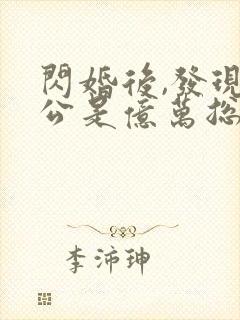 閃婚後,發現
公是億萬總
李沛珅